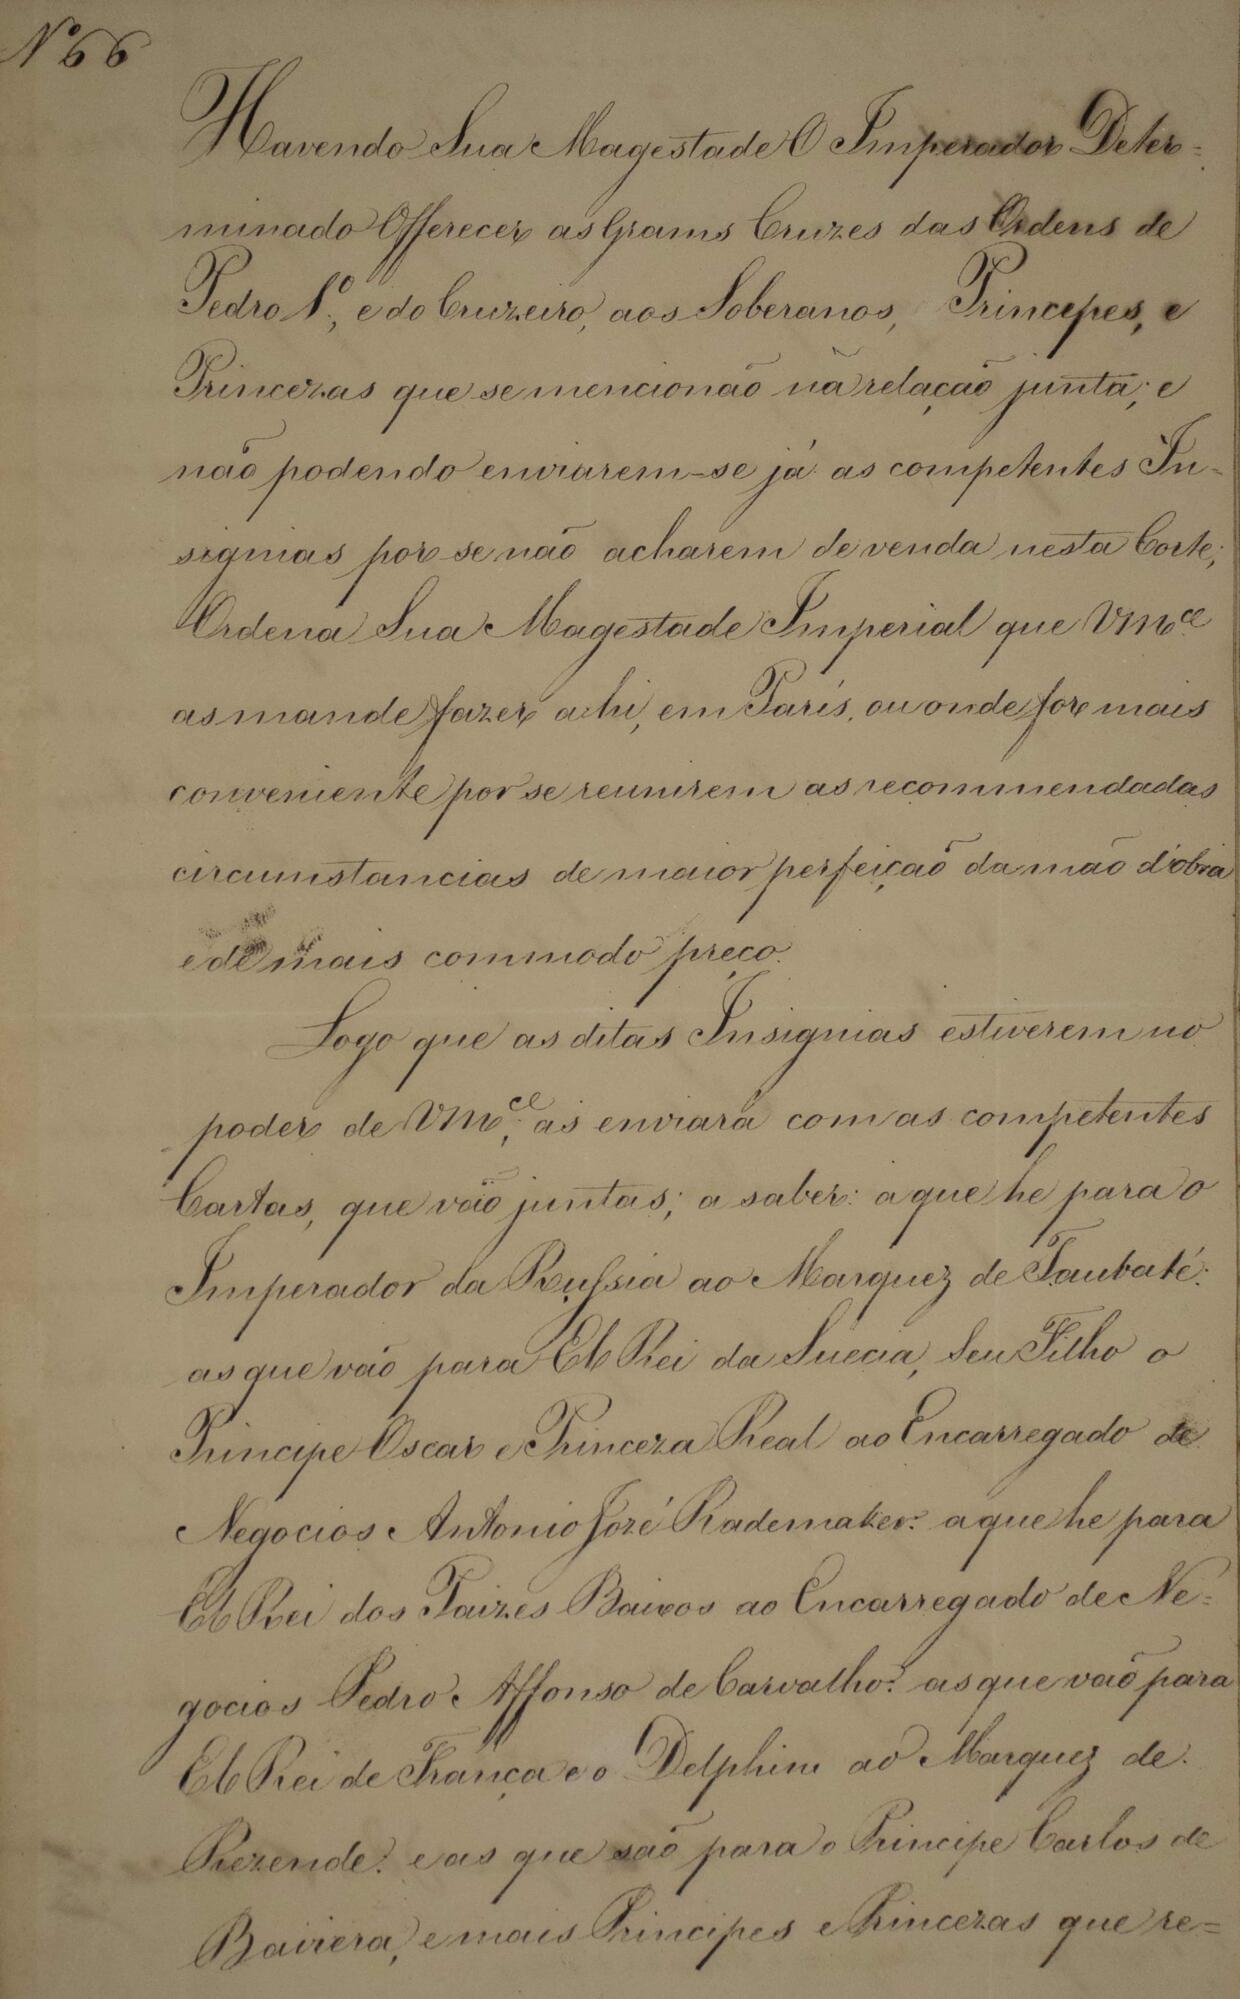 Nº 66
Havendo Sua Magestade O Imperador Deter=
minado Offerecer as Grams Cruzes das Ordens de
Pedro 1.º, e do Cruzeiro, aos Soberanos, Principes, e
Princezas que se mencionão na relação junta; e
não podendo enviarem-se já as competentes In-
signias por se não acharem de venda nesta Corte;
Ordena Sua Magestade Imperial que Vm.ce
as mande fazer ahi, em Paris, ou onde for mais
conveniente por se reunirem as recommendadas
circumstancias de maior perfeição da mão d'obra
e de mais commodo preço.
Logo que as ditas Insignias estiverem no
poder de Vm.ce, as enviará com as competentes
Cartas, que vão juntas; a saber: a que he para o
Imperador da Russia ao Marquez de Taubaté:
as que vão para El Rei da Suecia, Seu Filho o
Principe Oscar e Princeza Real ao Encarregado de
Negocios Antonio Jozé Rademaker: a que he para
El Rei dos Paizes Baixos ao Encarregado de Ne=
gocios Pedro Affonso de Carvalho: as que vão para
El Rei de França e o Delphim ao Marquez de
Rezende: e as que são para o Principe Carlos de
Baviera, e mais Principes e Princezas que re=